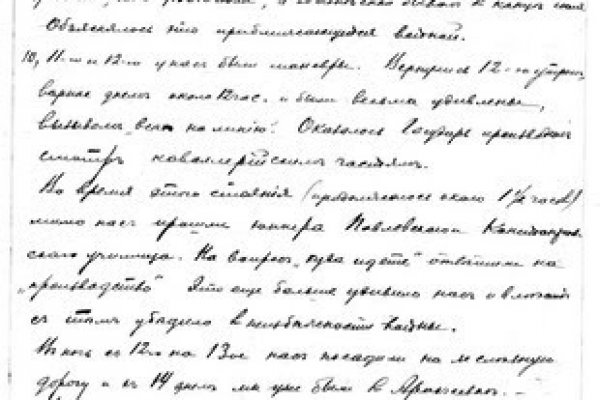 Объяснялось это приближающейся войной.
10, 11-го и 12-го у нас были маневры. Вернулись 12-го утром,
вернее днем около 12 час. и были весьма удивлены,
вызовом "всех на линию". Оказалось Государь производил
смотр кавалерийским частям.
Во время этого стояния (продолжалось около 1½ часов)
мимо нас прошли юнкера Павловского
училища. На вопрос "куда идете" отвечали на
"производство" Это еще больше удивило нас и
с этим убедило в неизбежности войны.
В ночь с 12-го на 13-ое нас посадили на железную
дорогу и с 14 днем мы уже были в